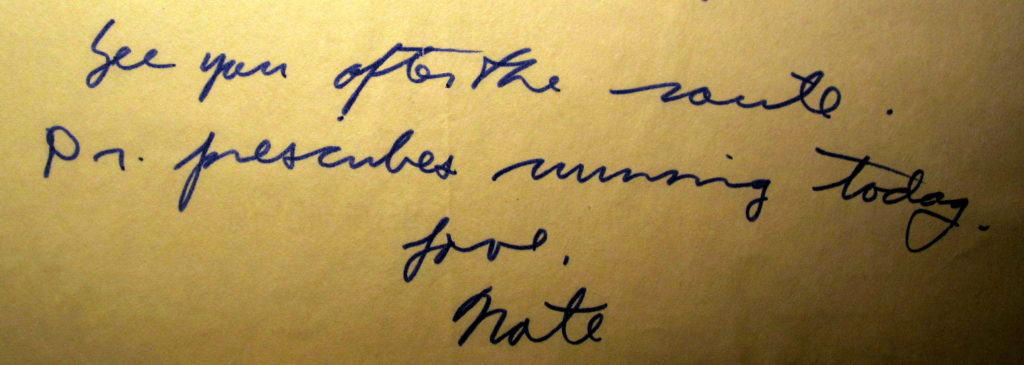 See you after the route.
Dr. prescribes running today.
Love,
Nate